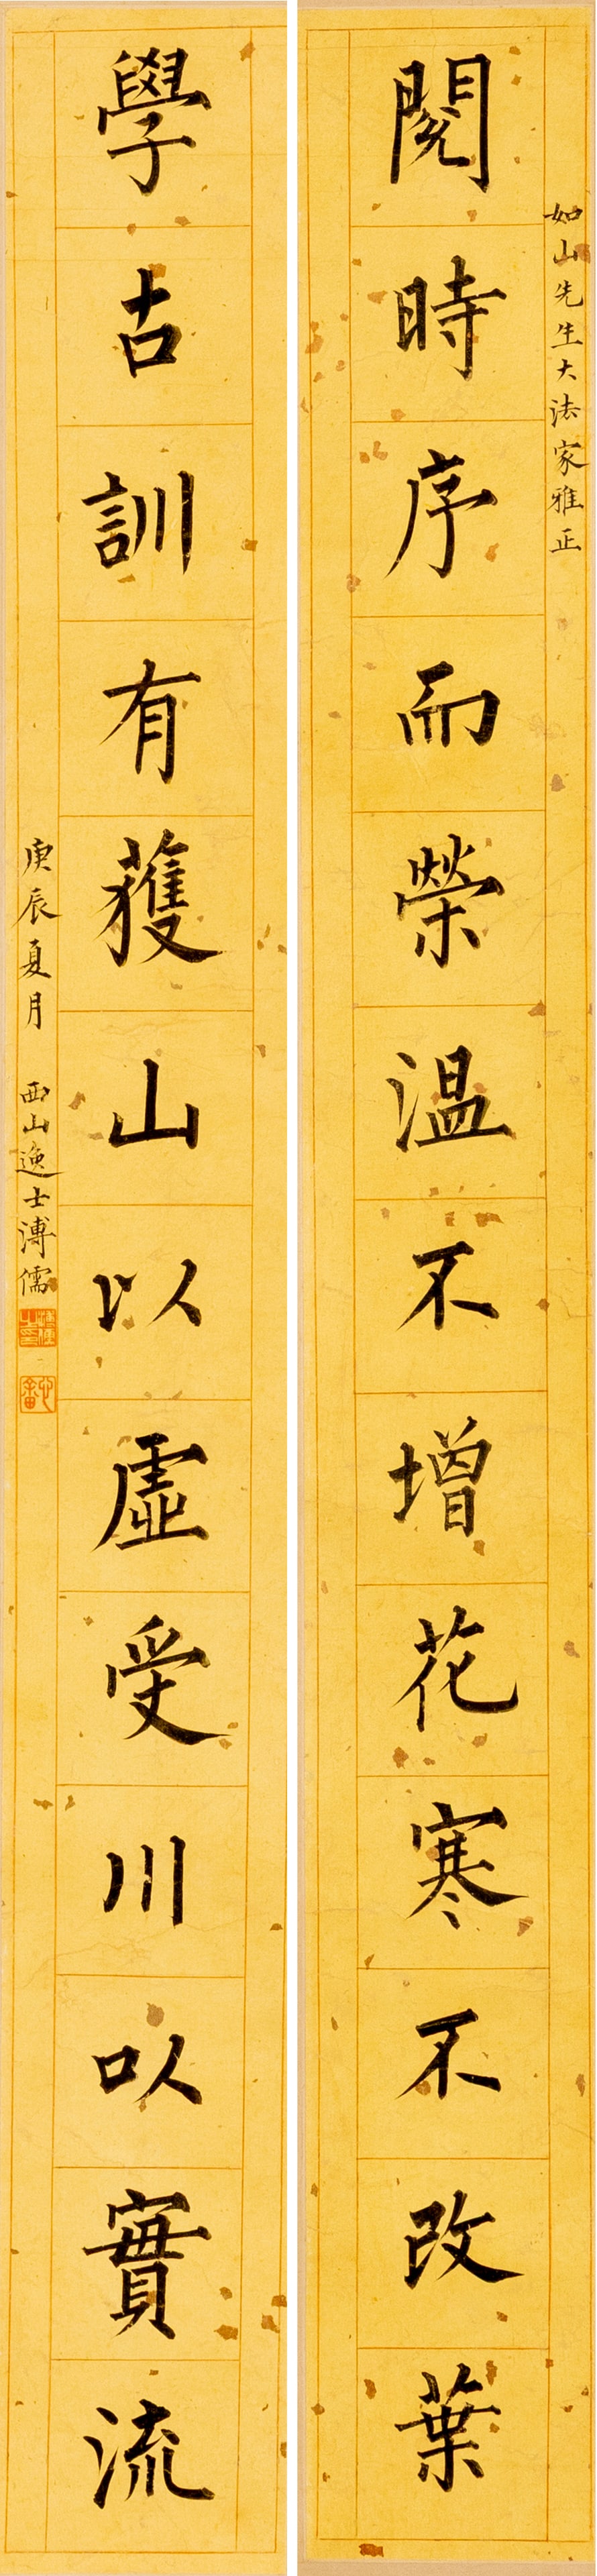 如山先生大法家雅正
閱時序而榮溫不增花寒不改葉
學古訓有獲山以虛受川以實流
庚辰夏月 西山逸士溥儒